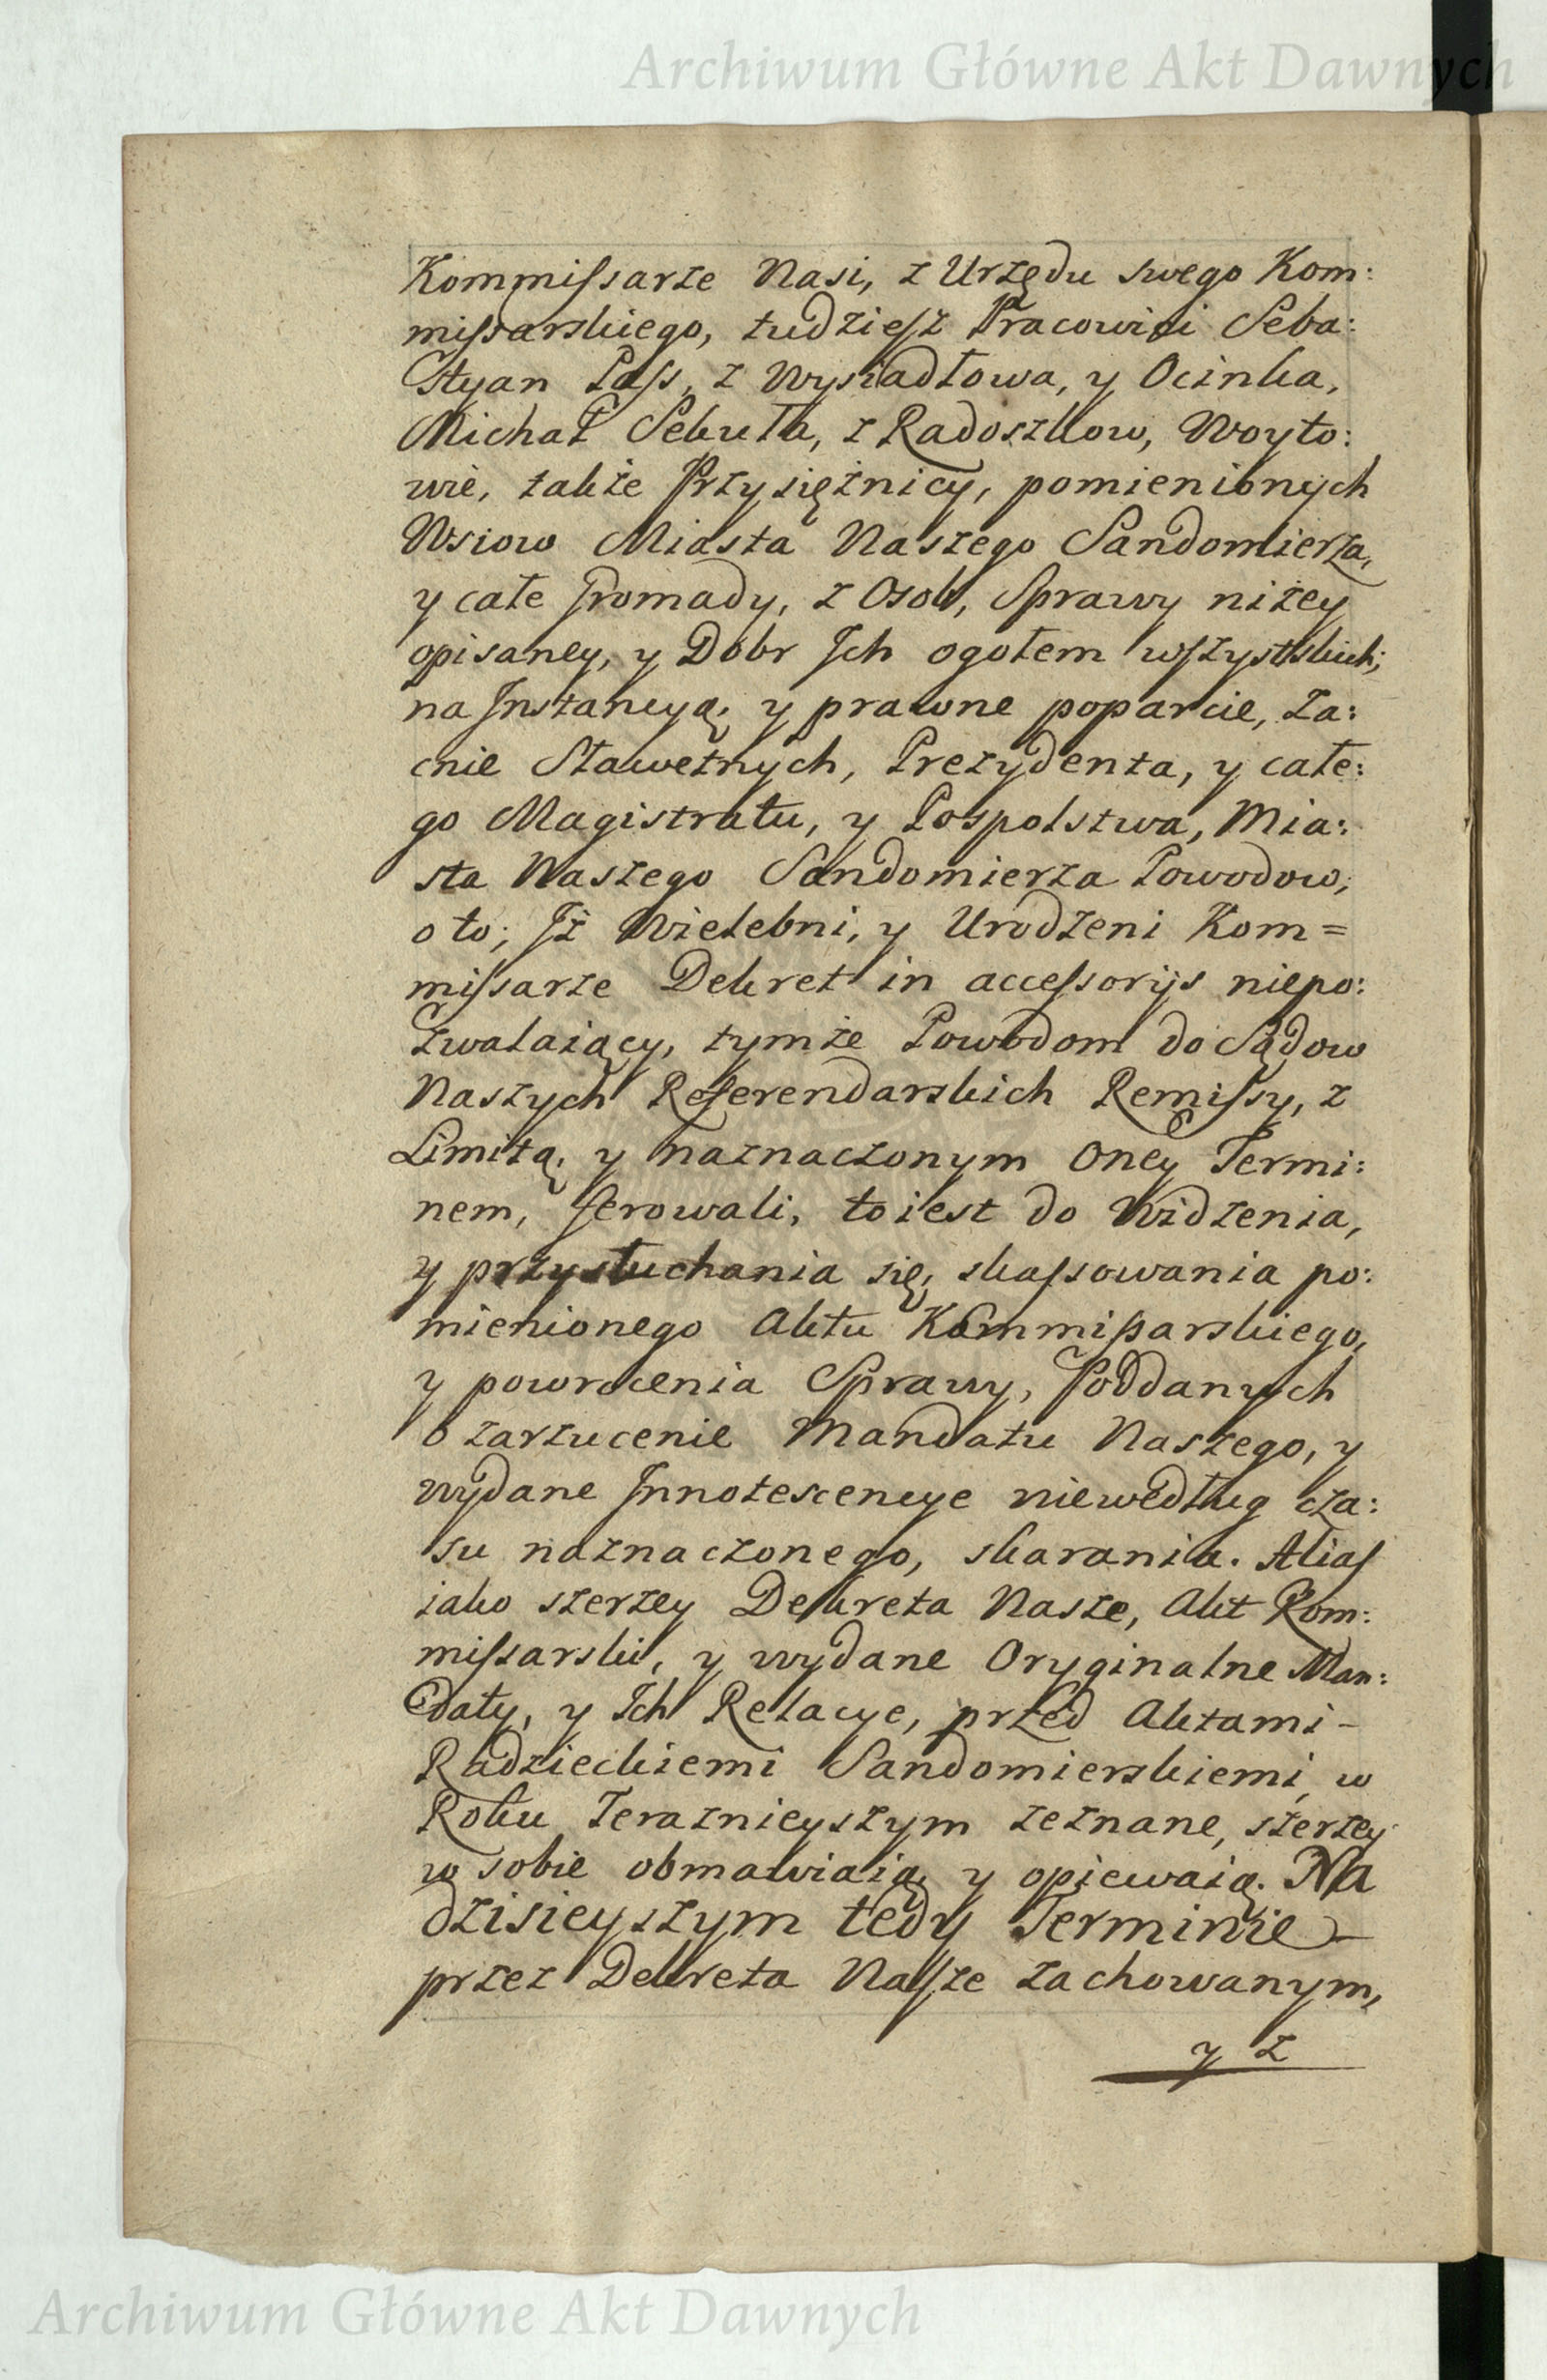 Archiwum Główne Akt Dawnych
Kommiſsarze Nasi, z Urzędu swego Kom:
miſsarskiego, tudzieſz Pracowici Seba:
styan Paſs, z Wysiadłowa, y Ocinka,
Michał Sekuła, z Radoszkow, Woyto:
wie, także Przysiężnicy, pomienionych
Wsiow Miasta Naszego Sandomierza,
y całe Gromady, z Osob, Sprawy niżey
opisaney, y Dobr Ich ogołem wſzystkich;
na Instancyą, y prawne poparcie, Za:
cnie Sławetnych, Prezydenta, y całe:
go Magistratu, y Pospolstwa, Mia:
sta Naszego Sandomierza Powodow,
o to; Iż Wielebni, y Urodzeni Kom=
miſsarze Dekret in acceſsorijs niepo:
zwalaiący, tymże Powodom do Sądow
Naszych Referendarskich Remiſsy, z
Limitą, y naznaczonym Oney Termi:
nem, ferowali, to iest do Widzenia,
y przysłuchania się, skaſsowania po:
mienionego Aktu Kommiſsarskiego,
y powrocenia Sprawy, Poddanych
o zarzucenie Mandatu Naszego, y
wydane Innotescencye niewedług cza:
su naznaczonego, skarania. Aliaſ
iako szerzey Dekreta Nasze, Akt Kom:
miſsarski, y wydane Oryginalne Man:
daty, y Ich Relacye, przed Aktami –
Radzieckiemi Sandomierskiemi, w
Roku Teraznieyszym zeznane, szerzey
w sobie obmawiaią, y opiewaią. Na
dzisieyszym tedy Terminie –
przez Dekreta Naſze zachowanym,
y z
Archiwum Główne Akt Dawnych